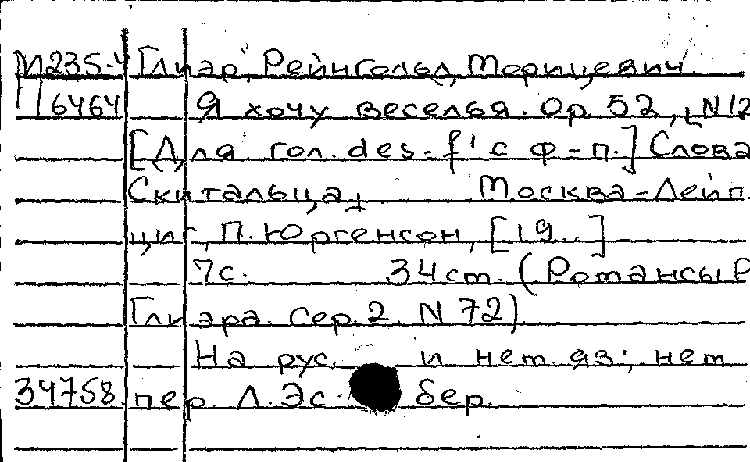 М235-4 Глиэр, Рейнгольд Морицевич
П6464 Я хочу веселья. Op. 52, N12
[Для гол. des-f' с ф-п.] Слова
Скитальца, Москва-Лейп
циг, П. Юргенсон, [19..]
7с. 34 cm. (Романсы Р
Глиэра. Сер. 2. N 72)
На рус. и нем яз; нем
34758 пер. Л. Эс бер.